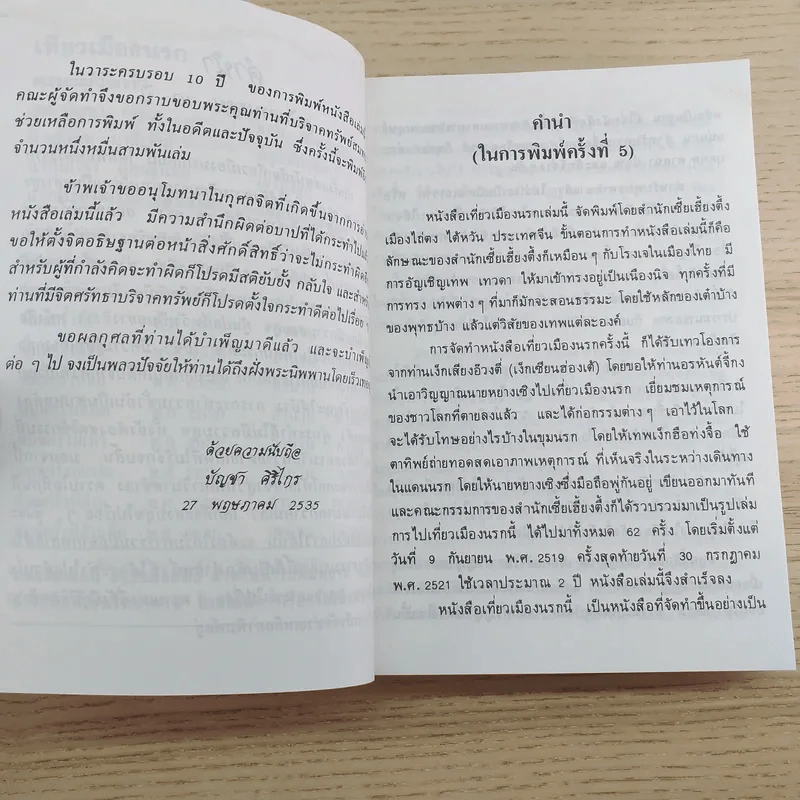 ในวาระครบรอบ 10 ปี ของการพิมพ์หนังสือเล่มนี้
คณะผู้จัดทำจึงขอกราบขอบพระคุณท่านที่บริจาคทรัพย์สมทบ
ช่วยเหลือการพิมพ์ ทั้งในอดีตและปัจจุบัน ซึ่งครั้งนี้จะพิมพ์
จำนวนหนึ่งหมื่นสามพันเล่ม
ข้าพเจ้าขออนุโมทนาในกุศลจิตที่เกิดขึ้นจากการอ่าน
หนังสือเล่มนี้แล้ว มีความสำนึกผิดต่อบาปที่ได้กระทำไปแล้ว
ขอให้ตั้งจิตอธิษฐานต่อหน้าสิ่งศักดิ์สิทธิ์ว่าจะไม่กระทำผิด
สำหรับผู้ที่กำลังคิดจะทำผิดก็โปรดมีสติยับยั้ง กลับใจ และสำหรับ
ท่านที่มีจิตศรัทธาบริจาคทรัพย์ก็โปรดตั้งใจกระทำดีต่อไปเรื่อย ๆ
ขอผลกุศลที่ท่านได้บำเพ็ญมาดีแล้ว และจะบำเพ็ญ
ต่อ ๆ ไป จงเป็นพลวปัจจัยให้ท่านได้ถึงฝั่งพระนิพพานโดยเร็วเทอญ
ด้วยความนับถือ
บัญชา ศิริไกร
27 พฤษภาคม 2535
คำนำ
(ในการพิมพ์ครั้งที่ 5)
หนังสือเที่ยวเมืองนรกเล่มนี้ จัดพิมพ์โดยสำนักเซี้ยเฮี้ยงตึ้ง
เมืองไถ่ตง ไต้หวัน ประเทศจีน ขั้นตอนการทำหนังสือเล่มนี้ก็คือ
ลักษณะของสำนักเซี้ยเฮี้ยงตึ้งก็เหมือนๆ กับโรงเจในเมืองไทย มี
การอัญเชิญเทพ เทวดา ให้มาเข้าทรงอยู่เป็นเนืองนิจ ทุกครั้งที่มี
การทรง เทพต่าง ๆ ที่มาก็มักจะสอนธรรมะ โดยใช้หลักของเต๋าบ้าง
ของพุทธบ้าง แล้วแต่วิสัยของเทพแต่ละองค์
การจัดทำหนังสือเที่ยวเมืองนรกครั้งนี้ ก็ได้รับเทวโองการ
จากท่านเง็กเสียงอ๊วงตี่ (เง็กเซียนฮ่องเต้) โดยขอให้ท่านอรหันต์จี้กง
นำเอาวิญญาณนายหยางเซิงไปเที่ยวเมืองนรก เยี่ยมชมเหตุการณ์
ของชาวโลกที่ตายลงแล้ว และได้ก่อกรรมต่าง ๆ เอาไว้ในโลก
จะได้รับโทษอย่างไรบ้างในขุมนรก โดยให้เทพเง็กฮือท่งจื้อ ใช้
ตาทิพย์ถ่ายทอดสดเอาภาพเหตุการณ์ ที่เห็นจริงในระหว่างเดินทาง
ในแดนนรก โดยให้นายหยางเซิงซึ่งมือถือพู่กันอยู่ เขียนออกมาทันที
และคณะกรรมการของสำนักเซี้ยเฮี้ยงตึ้งก็ได้รวบรวมมาเป็นรูปเล่ม
การไปเที่ยวเมืองนรกนี้ ได้ไปมาทั้งหมด 62 ครั้ง โดยเริ่มตั้งแต่
วันที่ 9 กันยายน พ.ศ. 2519 ครั้งสุดท้ายวันที่ 30 กรกฎาคม
พ.ศ. 2521 ใช้เวลาประมาณ 2 ปี หนังสือเล่มนี้จึงสำเร็จลง
หนังสือเที่ยวเมืองนรกนี้ เป็นหนังสือที่จัดทำขึ้นอย่างเป็น